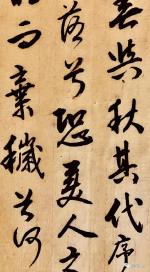 春與秋其代序
落兮恐美人之
而棄穢兮何